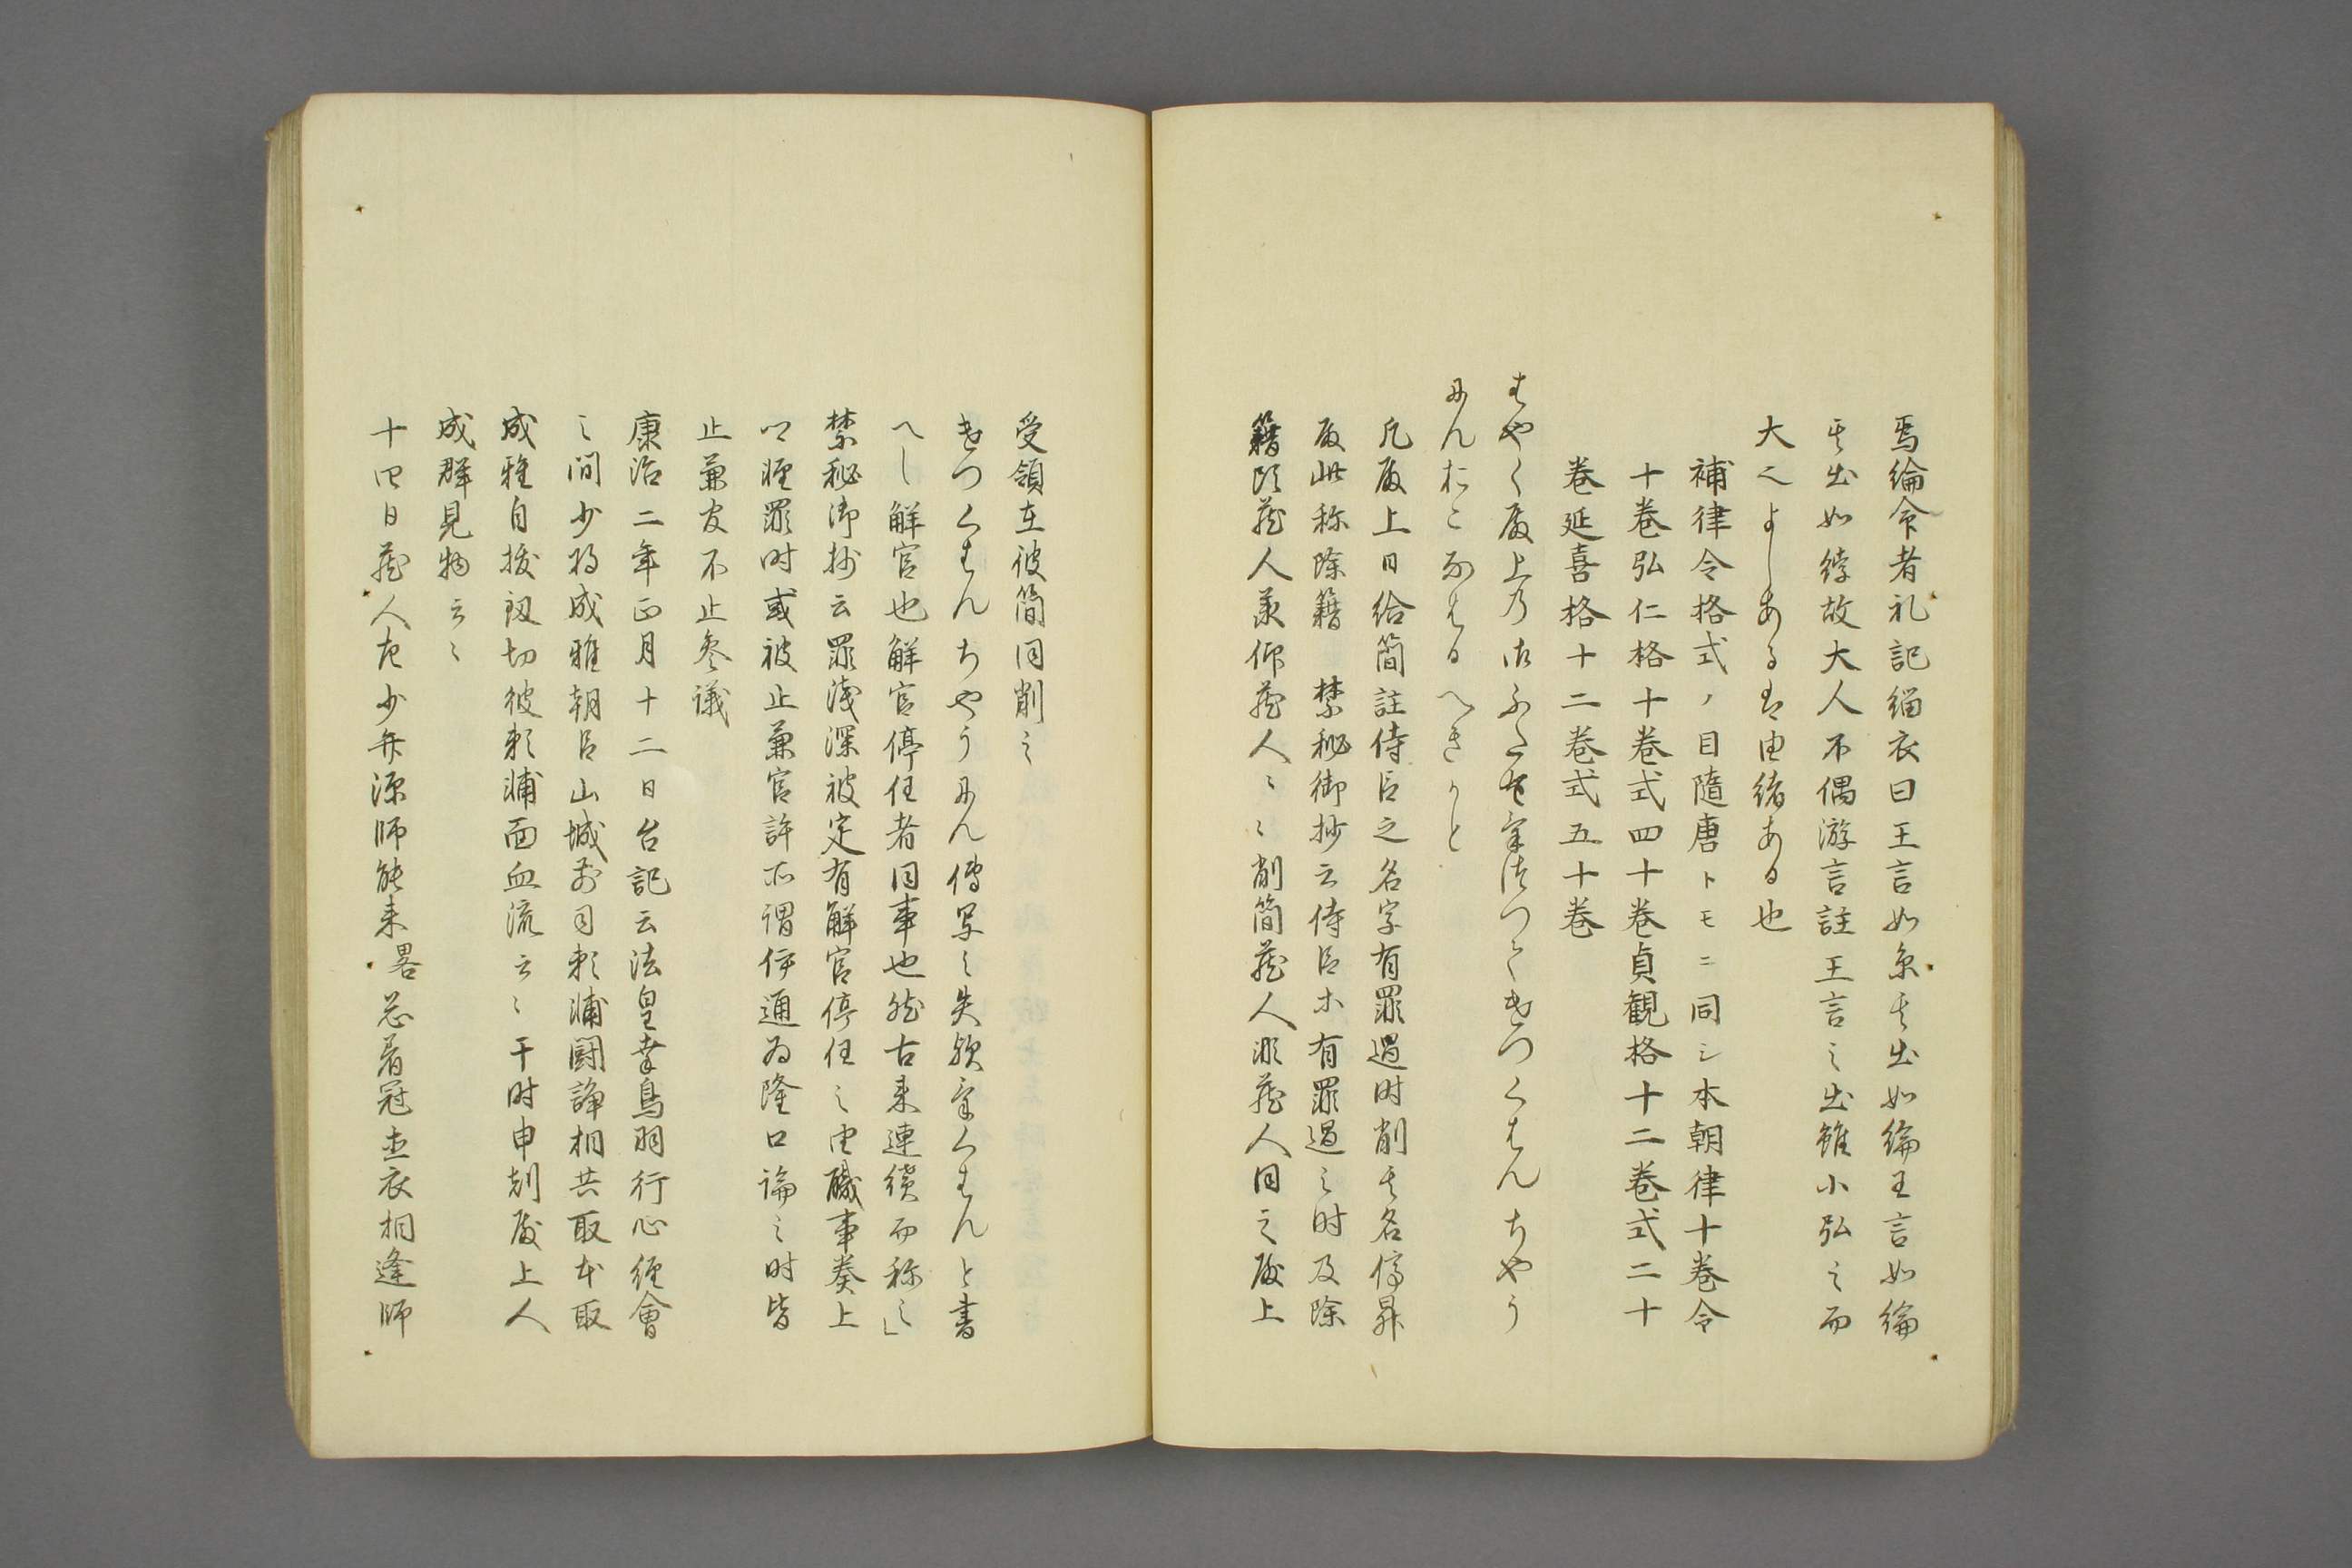 焉綸命者礼記緇衣曰王言如糸其出如綸王言如綸
其出如綍故大人不偶游言註王言之出雖小弘之而
大也よしあるは由緒ある也
補律令格式ノ目隨唐トモニ同シ本朝律十巻令
十巻弘仁格十巻式四十巻貞観格十二巻式二十
巻延喜格十二巻式五十巻
はやく殿上の御ふたをけつりてけつくはんちやう
にんおこなはるへきかと
凡殿上日給簡註侍臣之名字有罪過时削其名停昇
殿此称除籍 禁秘御抄云侍臣ホ有罪過之时及除
籍頭蔵人承仰蔵人〻〻削簡蔵人非蔵人同之殿上
受領在彼簡同削之
けつくはんちやうにん傳写之失歟けくはんと書
へし解官也解官停任者同事也然古来連續而称之」
禁秘御抄云罪浅深被定有解官停任之由職事奏上
卿軽罪时或被止兼官許所謂伊通為隆口論之时皆
止兼官不止参議
康治二年正月十二日台記云法皇幸鳥羽行心經會
之間少将成雅朝臣山城前司頼輔闘諍相共取本取
成雅自抜釼切彼頼輔面血流云〻于时申剋殿上人
成群見物云〻
十四日蔵人左少弁源師能来畧忩着冠直衣相逢師